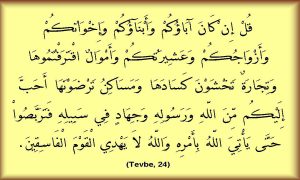 قُلْ إِن كَانَ آبَاؤُكُمْ وَأَبْنَآؤُكُمْ وَإِخْوَانُكُمْ
وَأَزْوَاجُكُمْ وَعَشِيرَتُكُمْ وَأَمْوَالٌ اقْتَرَفْتُمُوهَا
وَتِجَارَةٌ تَخْشَوْنَ كَسَادَهَا وَمَسَاكِنُ تَرْضَوْنَهَا أَحَبَّ
إِلَيْكُم مِّنَ اللّهِ وَرَسُولِهِ وَجِهَادٍ فِي سَبِيلِهِ فَتَرَبَّصُواْ
حَتَّى يَأْتِيَ اللّهُ بِأَمْرِهِ وَاللّهُ لاَ يَهْدِي الْقَوْمَ الْفَاسِقِينَ.
(Tevbe, 24)